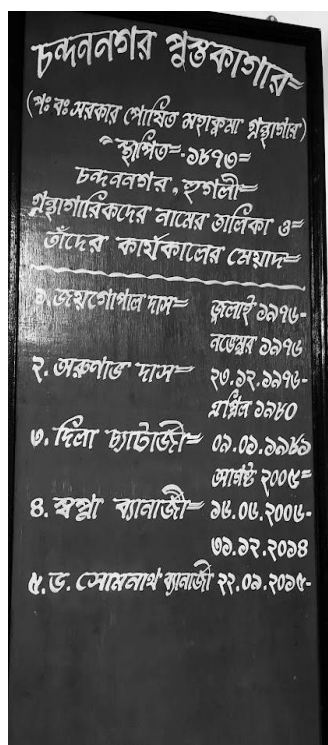 চন্দননগর পুস্তকাগার=
(পঃ বঃ সরকার পোষিত মহাকুমা গ্রন্থাগার)
স্থাপিত=-১৮৭৩=
চন্দননগর, হুগলী=
গ্রন্থাগারিকদের নামের তালিকা ও=
তাঁদের কার্যকালের মেয়াদ=
১. জয়গোপাল দাস= জুলাই ১৯৭৬-
নভেম্বর ১৯৭৬
২. অরুনাভ দাস= ২৩.১২.১৯৭৬-
এপ্রিল ১৯৮০
৩. দিলা চ্যাটার্জী= ০৯.০১.১৯৮১
আগষ্ট ২০০৫=
৪. স্বপ্না ব্যানার্জী= ১৬.০৬.২০০৬-
৩১.১২.২০১৪
৫. ড. সোমনাথ ব্যানার্জী ২২.০৯.২০১৫-